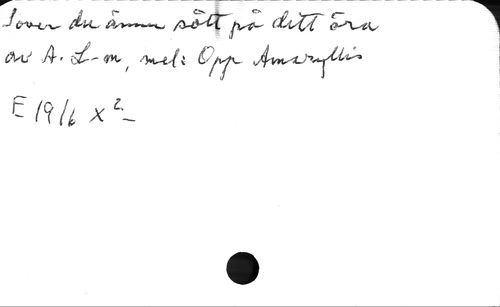 Sover du ännu sött på ditt öra
av A. L-m, mel: Opp Amaryllis
E 19/6 x 2-